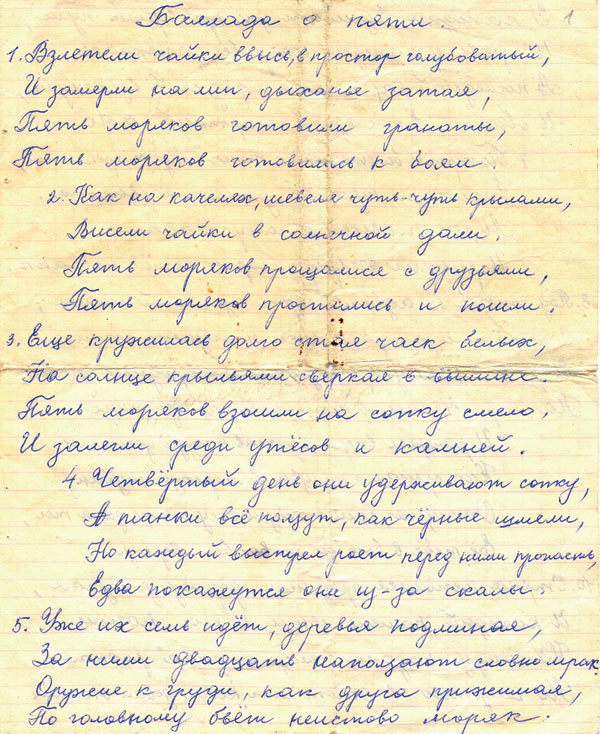 Баллада о пяти. 1
1. Взлетели чайки ввысь, в простор голубоватый,
И замерли на миг, дыханье затая,
Пять моряков готовили гранаты,
Пять моряков готовились к боям.
2. Как на качелях, шевеля чуть-чуть крылами,
Висели чайки в солнечной дали.
Пять моряков прощалися с друзьями,
Пять моряков простились и пошли.
3. Еще кружилась долго стая чаек белых,
На солнце крыльями сверкая в вышине.
Пять моряков взошли на сопку смело,
И залегли среди утёсов и камней.
4. Четвёртый день они удерживают сопку,
А танки всё ползут, как чёрные шмели,
Но каждый выстрел роет перед ними пропасть,
Едва покажутся они из-за скалы.
5. Уже их семь идёт, деревья подминая,
За ними двадцать наползают словно мрак.
Оружие к груди, как друга прижимая,
По головному бьёт неистово моряк.